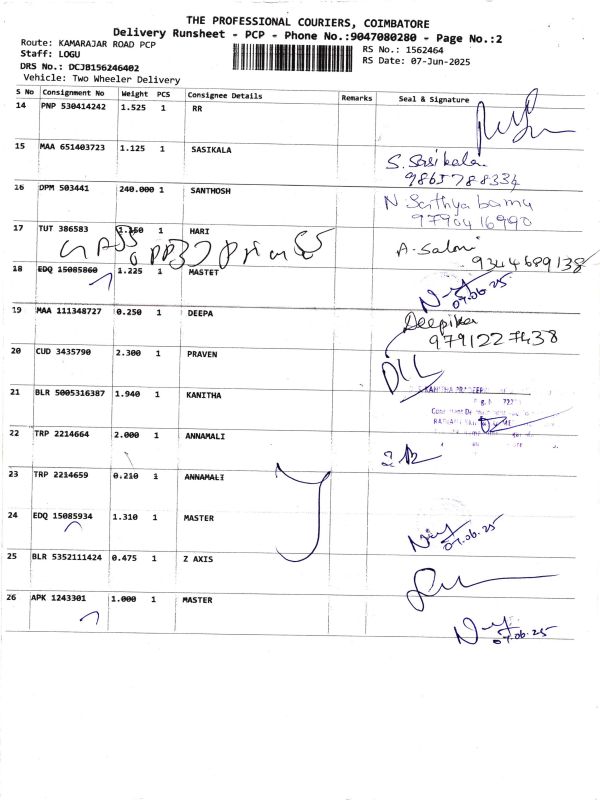 THE PROFESSIONAL COURIERS, COIMBATORE
Delivery Runsheet - PCP - Phone No.:9047080280 - Page No.:2
Route: KAMARAJAR ROAD PCP
Staff: LOGU
DRS No.: DCJB156246402
Vehicle: Two Wheeler Delivery
RS No.: 1562464
RS Date: 07-Jun-2025
S No Consignment No Weight PCS Consignee Details Remarks Seal & Signature
14 PNP 530414242 1.525 1 RR
15 MAA 651403723 1.125 1 SASIKALA S. Sasikala
9865788334
16 DPM 503441 240.000 1 SANTHOSH N. Sathyabama
9790416990
17 TUT 386583 1 HARI A. Saloni
9344689138
18 EDQ 15085860 1.225 1 MASTET 07.06.25
19 MAA 111348727 0.250 1 DEEPA Deepika
9791227438
20 CUD 3435790 2.300 1 PRAVEN
21 BLR 5005316387 1.940 1 KANITHA
22 TRP 2214664 2.000 1 ANNAMALI
23 TRP 2214659 0.210 1 ANNAMALI
24 EDQ 15085934 1.310 1 MASTER 07.06.25
25 BLR 5352111424 0.475 1 Z AXIS
26 APK 1243301 1.000 1 MASTER 07.06.25